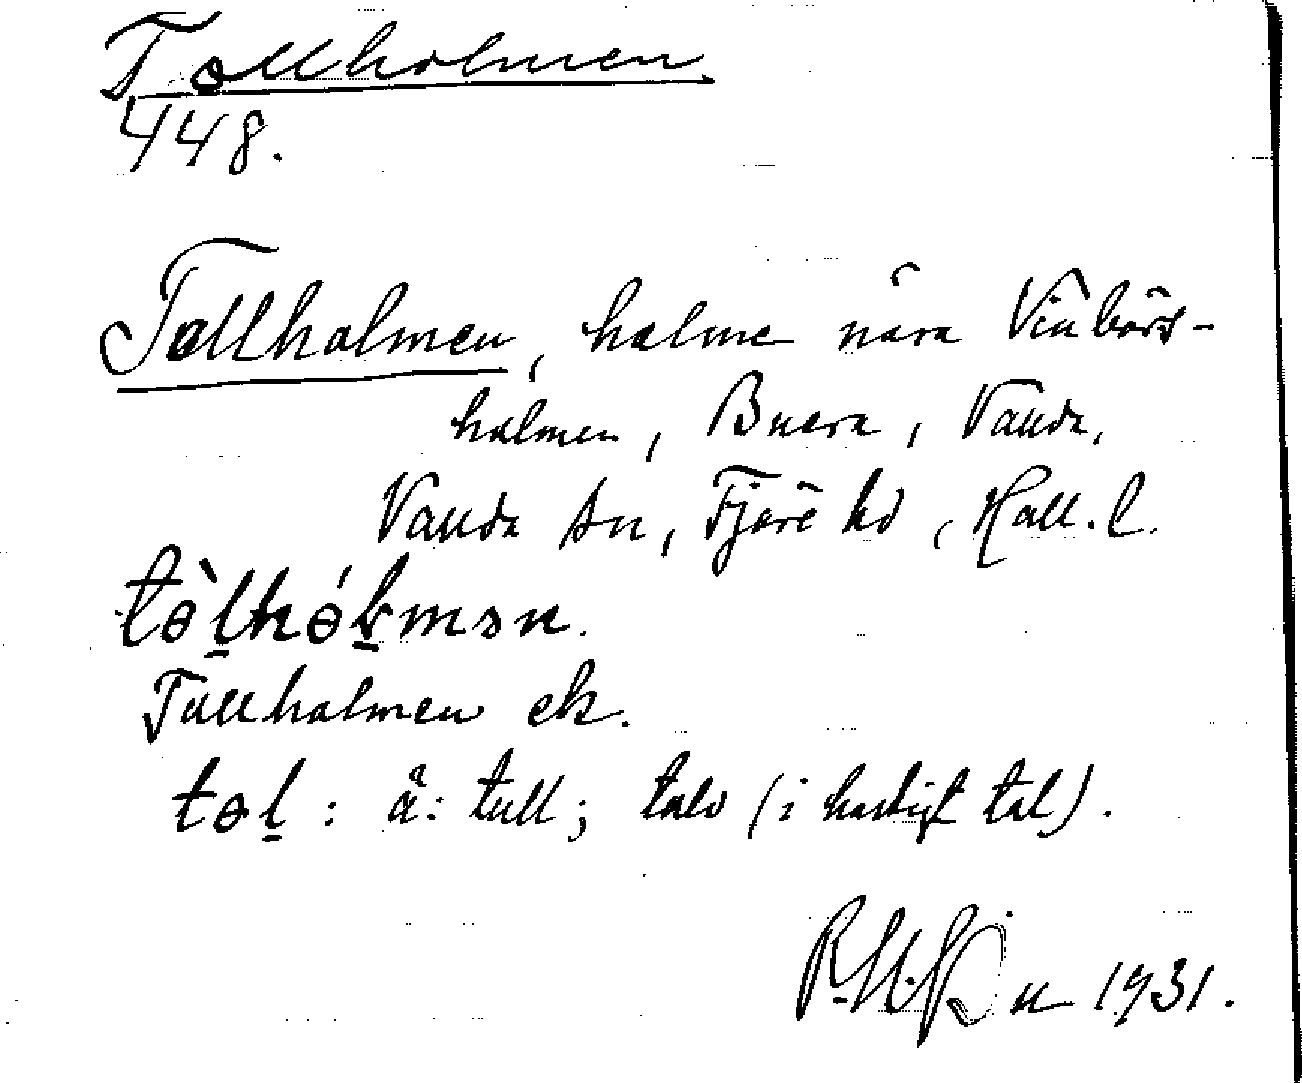 Tollholmen
448.
Tollholmen, holme nära Vinbärs-
holmen, Buera, Vanda,
Vanda sn, Fjäre hd, Hall. l.
tòlhólmən.
Tullholmen ek.
tol: ä: tull; talv (i hastigt tal).
1931.